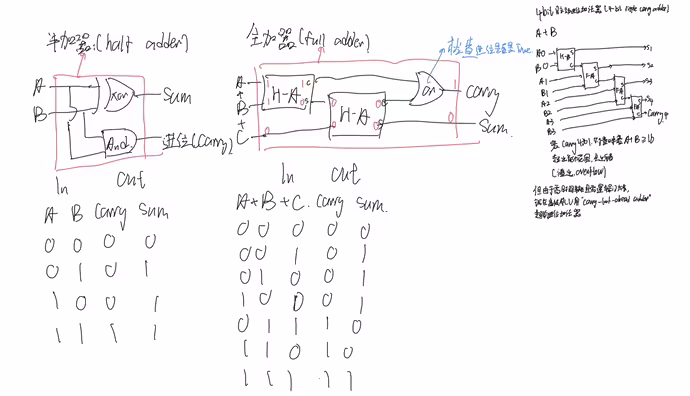 半加器:(half adder)
A
B
Xor
And
Sum
进位(Carry)
In Out
A B Carry Sum
0 0 0 0
0 1 0 1
1 0 0 1
1 1 1 1
全加器(full adder)
检查进位是否是True
A
+
B
+
C
H-A
H-A
Or
Carry
Sum.
In Out
A+B+C. Carry Sum.
0 0 0 0 0
0 0 1 0 1
0 1 0 0 1
1 0 0 0 1
0 1 1 1 0
1 1 0 1 0
1 1 1 1 1
(4-bit ripple carry adder)
A+B
A0
B0
A1
B1
A2
B2
A3
B3
H-A
F-A
F-A
S1
S2
S3
S4
Carry
(溢出, overflow)
"carry-look-ahead adder"